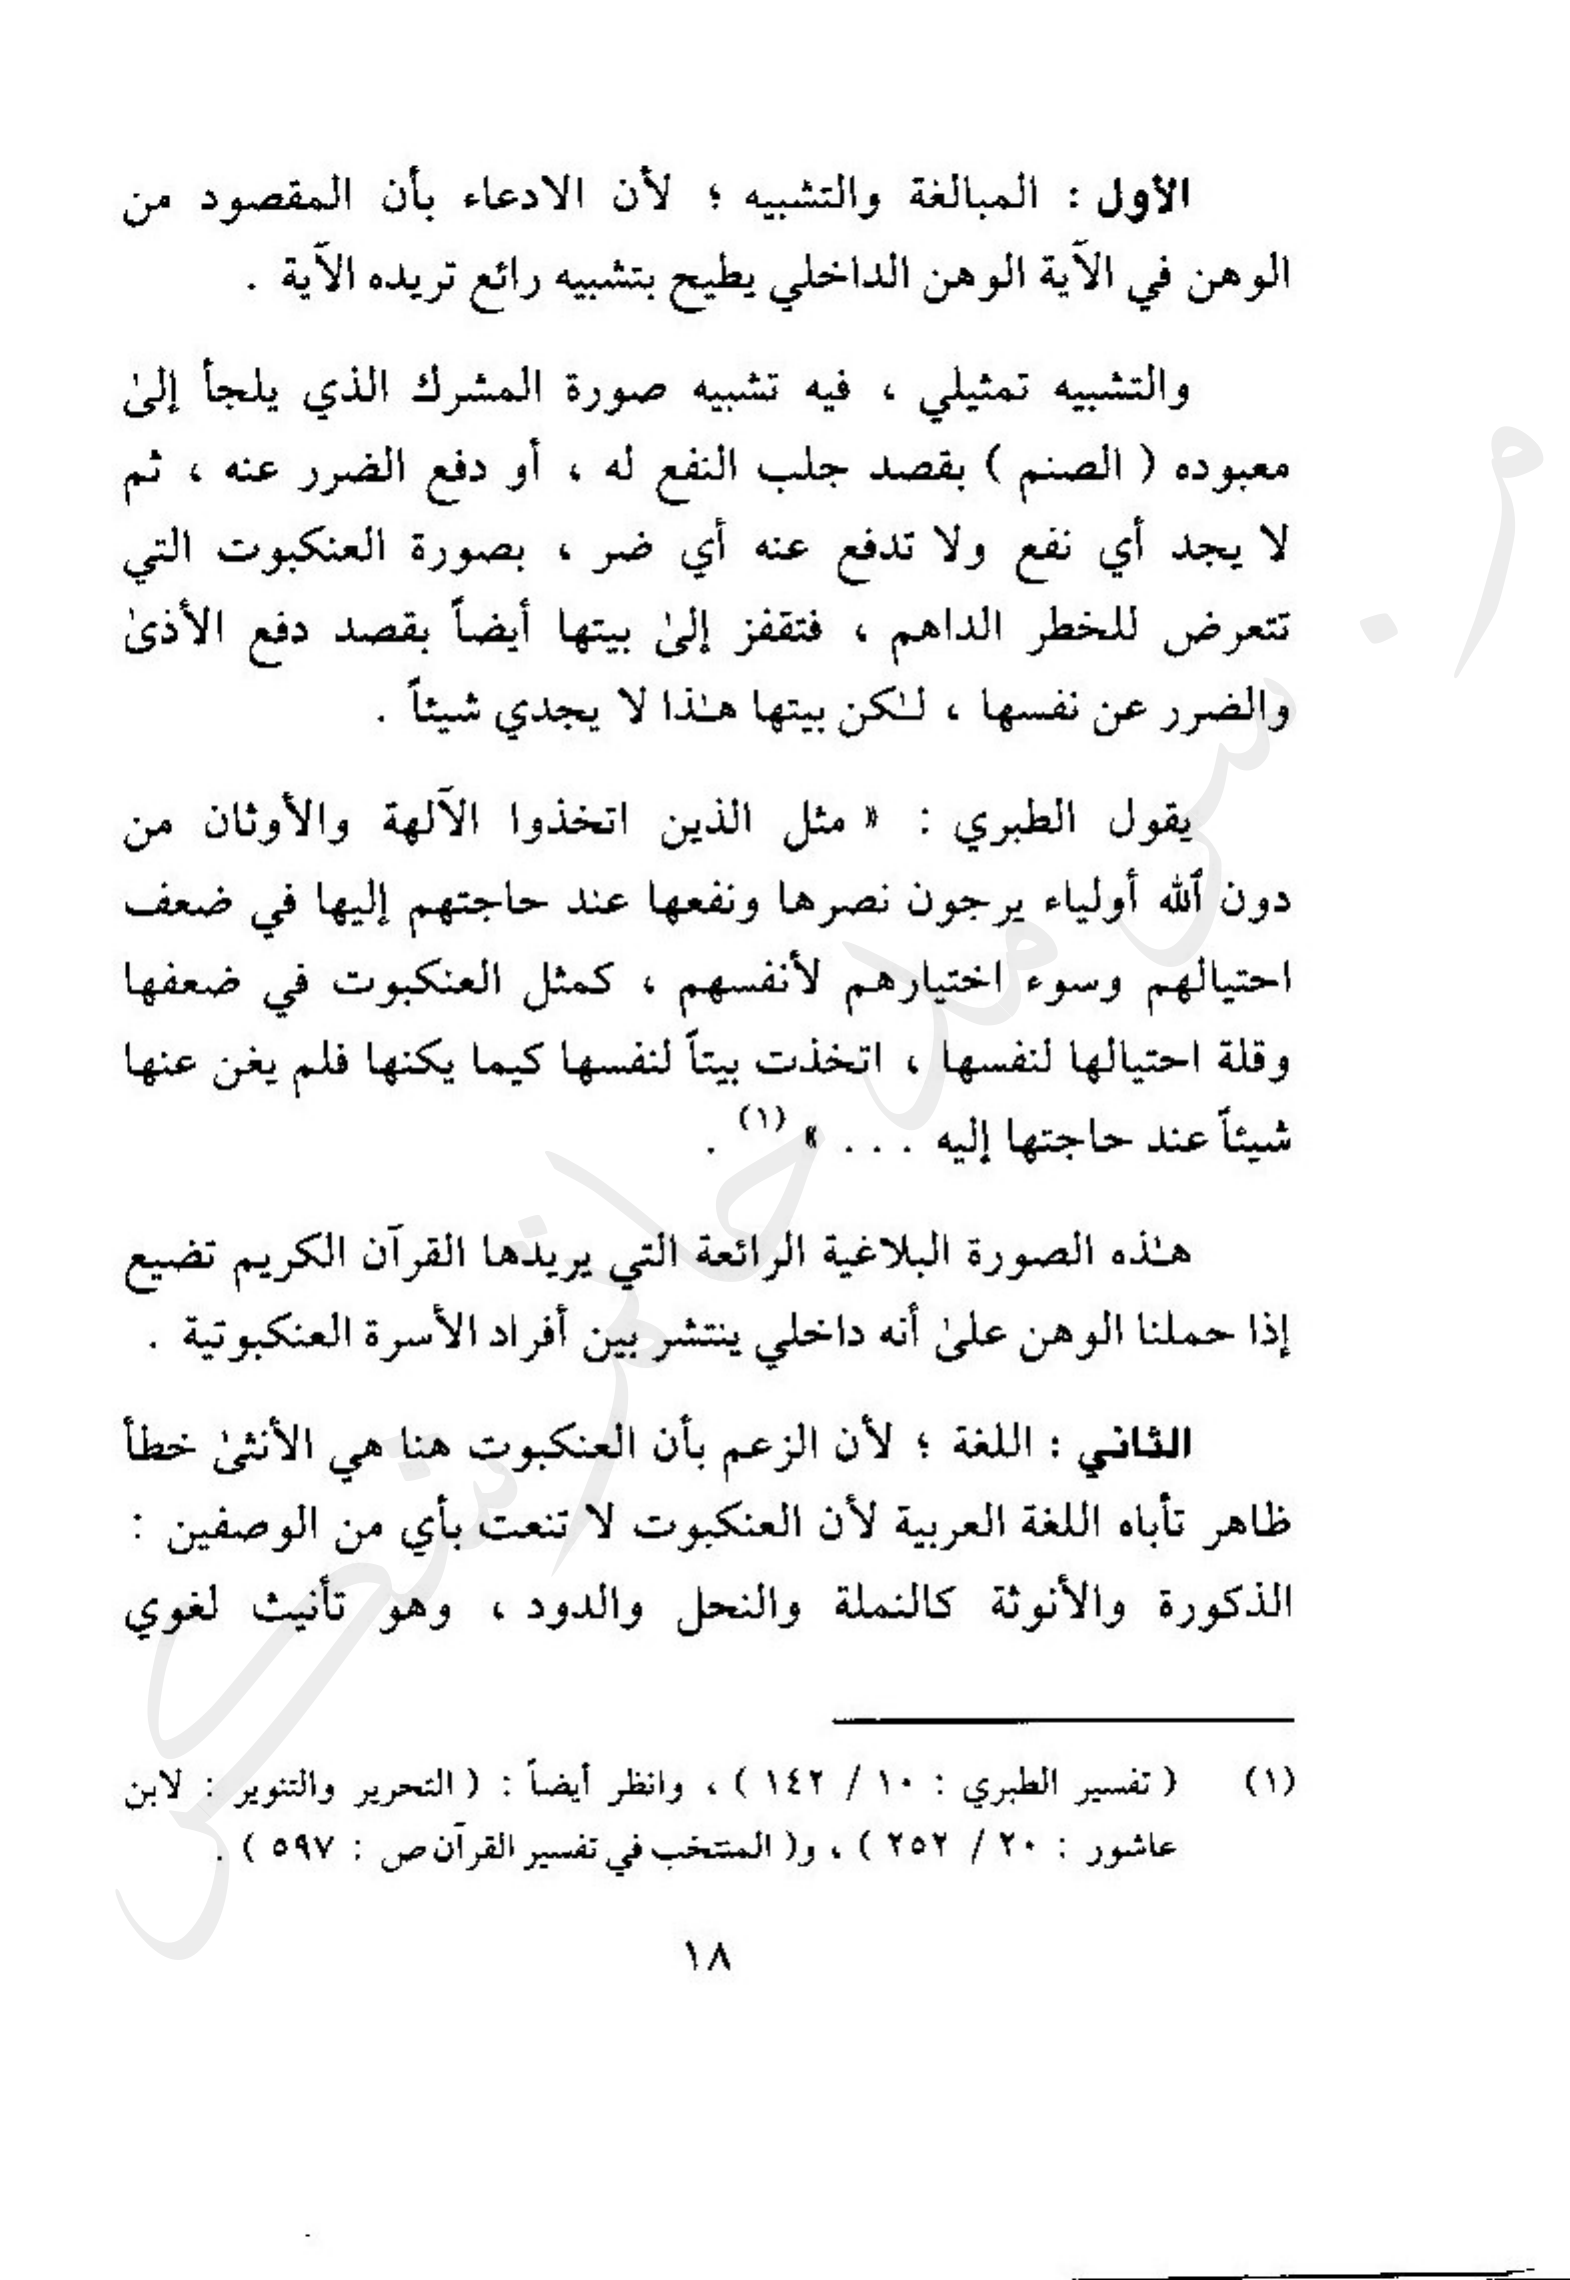 الأول : المبالغة والتشبيه ؛ لأن الادعاء بأن المقصود من
الوهن في الآية الوهن الداخلي يطيح بتشبيه رائع تريده الآية .
والتشبيه تمثيلي ، فيه تشبيه صورة المشرك الذي يلجأ إلىٰ
معبوده ( الصنم ) بقصد جلب النفع له ، أو دفع الضرر عنه ، ثم
لا يجد أي نفع ولا تدفع عنه أي ضر ، بصورة العنكبوت التي
تتعرض للخطر الداهم ، فتقفز إلىٰ بيتها أيضاً بقصد دفع الأذىٰ
والضرر عن نفسها ، لـٰكن بيتها هـٰذا لا يجدي شيئاً .
يقول الطبري : « مثل الذين اتخذوا الآلهة والأوثان من
دون ٱلله أولياء يرجون نصرها ونفعها عند حاجتهم إليها في ضعف
احتيالهم وسوء اختيارهم لأنفسهم ، كمثل العنكبوت في ضعفها
وقلة احتيالها لنفسها ، اتخذت بيتاً لنفسها كيما يكنها فلم يغن عنها
شيئاً عند حاجتها إليه . . . » (١) .
هـٰذه الصورة البلاغية الرائعة التي يريدها القرآن الكريم تضيع
إذا حملنا الوهن علىٰ أنه داخلي ينتشر بين أفراد الأسرة العنكبوتية .
الثاني : اللغة ؛ لأن الزعم بأن العنكبوت هنا هي الأنثىٰ خطأ
ظاهر تأباه اللغة العربية لأن العنكبوت لا تنعت بأي من الوصفين :
الذكورة والأنوثة كالنملة والنحل والدود ، وهو تأنيث لغوي
(١) ( تفسير الطبري : ١٠ / ١٤٢ ) ، وانظر أيضاً : ( التحرير والتنوير : لابن
عاشور : ٢٠ / ٢٥٢ ) ، و( المنتخب في تفسير القرآن ص : ٥٩٧ ) .
١٨